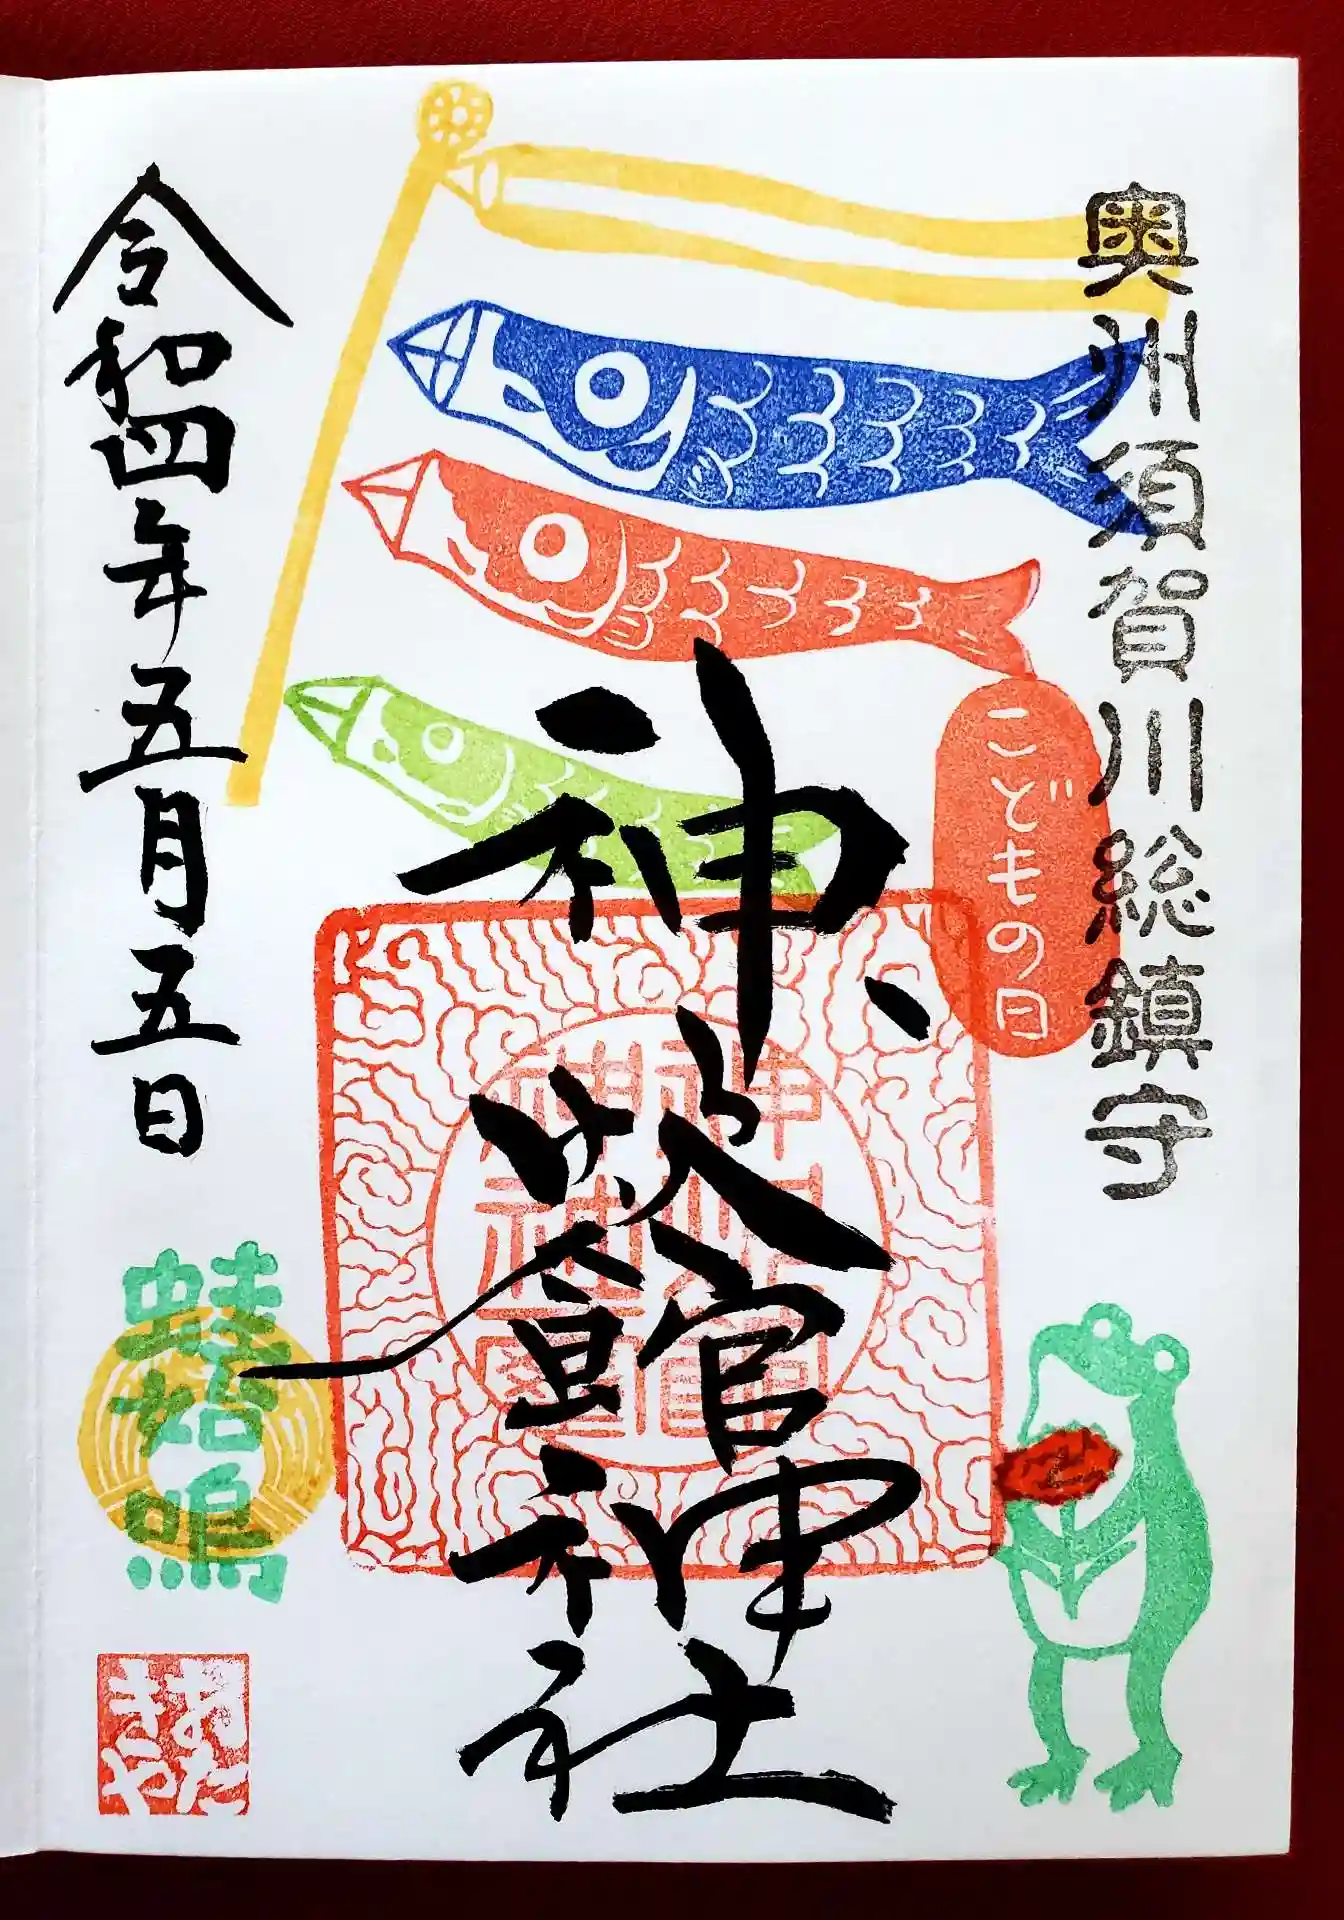 奥州須賀川総鎮守
こどもの日
神炊館神社
令和四年五月五日
蛙始鳴
おたきや